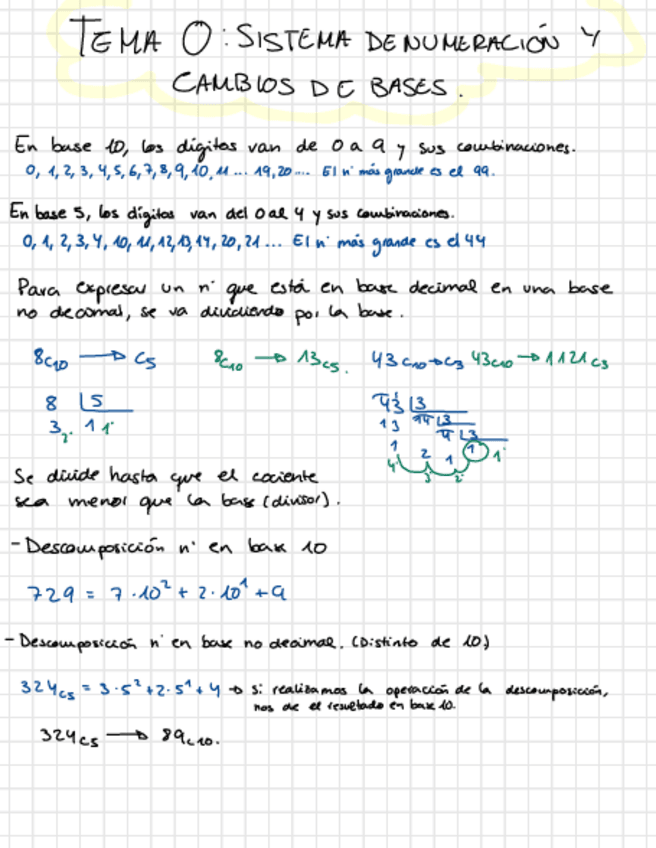 TEMA 0: SISTEMA DE NUMERACIÓN Y
CAMBIOS DE BASES.
En base 10, los dígitos van de 0 a 9 y sus combinaciones.
0, 1, 2, 3, 4, 5, 6, 7, 8, 9, 10, 11 ... 19, 20 .... El nº más grande es el 99.
En base 5, los dígitos van del 0 al 4 y sus combinaciones.
0, 1, 2, 3, 4, 10, 11, 12, 13, 14, 20, 21 ... El nº más grande es el 44
Para expresar un nº que está en base decimal en una base
no decimal, se va dividiendo por la base.
8c10 → c5 8c10 → 13c5. 43c10→c3 43c10→1121c3
8 |5
3 2º 1 1º
43 |3
13 14 |3
4 |3
1 2 1 1 1º
4º 3º 2º
Se divide hasta que el cociente
sea menor que la base (divisor).
- Descomposición nº en base 10
729 = 7·10² + 2·10¹ + 9
- Descomposición nº en base no decimal. (Distinto de 10)
324c5 = 3·5² + 2·5¹ + 4 → si realizamos la operación de la descomposición,
nos da el resultado en base 10.
324c5 → 89c10.